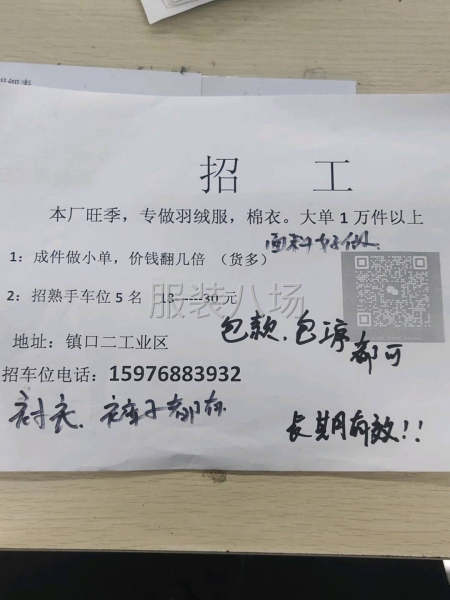 招 工
本厂旺季，专做羽绒服，棉衣。大单1万件以上
面料好做
1：成件做小单，价钱翻几倍 （货多）
2：招熟手车位5名 18-----30元
服装八场
包款、包床都可
地址：镇口二工业区
招车位电话：15976883932
衬衣、裤子都有
长期有效！！